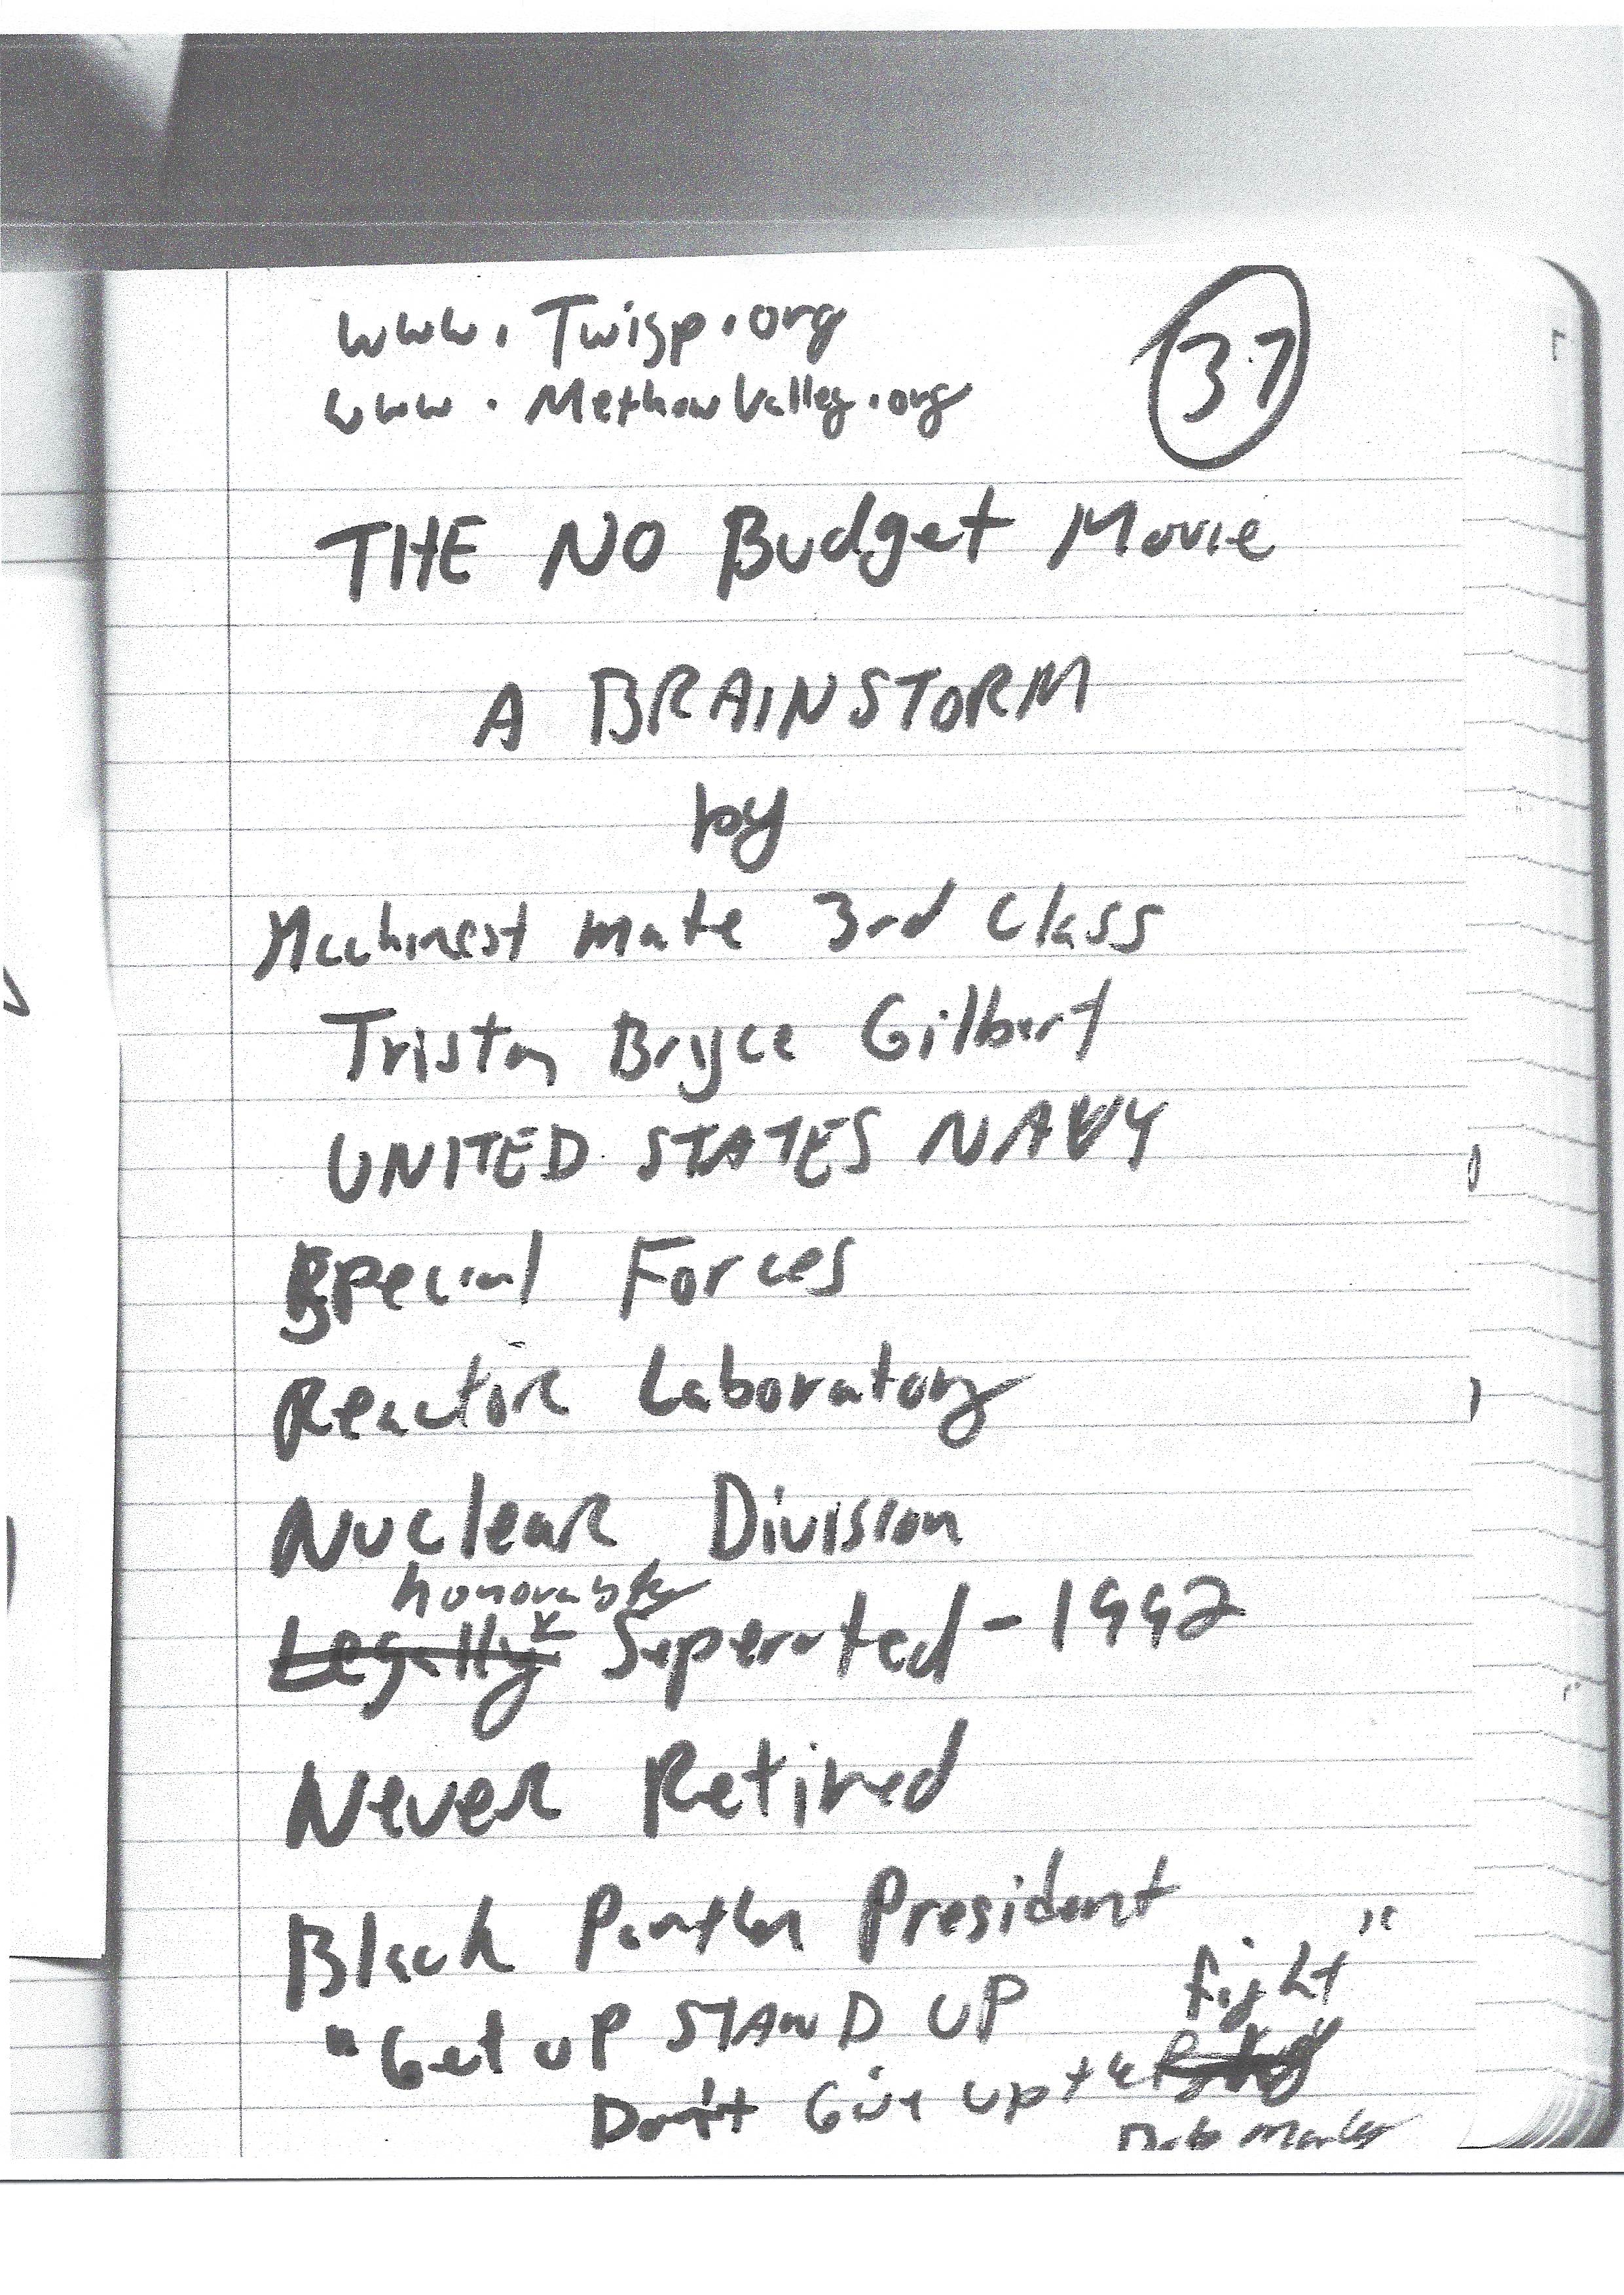 www.Twisp.org
37
www.MethowValley.org
THE NO Budget Movie
A BRAINSTORM
by
Machinest mate 3rd Class
Tristan Bryce Gilbert
UNITED STATES NAVY
Special Forces
Reactor Laboratory
Nuclear Division
honorably
Legally Seperated - 1992
Never Retired
Black Panther President
"Get UP STAND UP
Don't Give up the fight"
Bob Marley